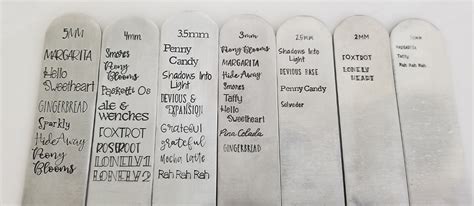 5MM
MARGARITA
Hello
Sweetheart
GINGERBREAD
Sparkly
Hide Away
Peony
Blooms
4mm
Smores
Peony
Blooms
Pockett Os
ale &
wenches
FOXTROT
ROSTROOT
LONELY 1
LONELY 2
3.5mm
Penny
Candy
Shadows Into
Light
DEVIOUS &
EXPANSION
Grateful
grateful
Mocha Latte
Rah Rah Rah
3mm
Peony Blooms
MARGARITA
Hide Away
Smores
Taffy
Hello Sweetheart
Pina Colada
GINGERBREAD
2.5mm
Shadows Into
Light
DEVIOUS BASE
Penny Candy
Salvador
2MM
FOXTROT
LONELY
HEART
Taffy
Rah Rah Rah